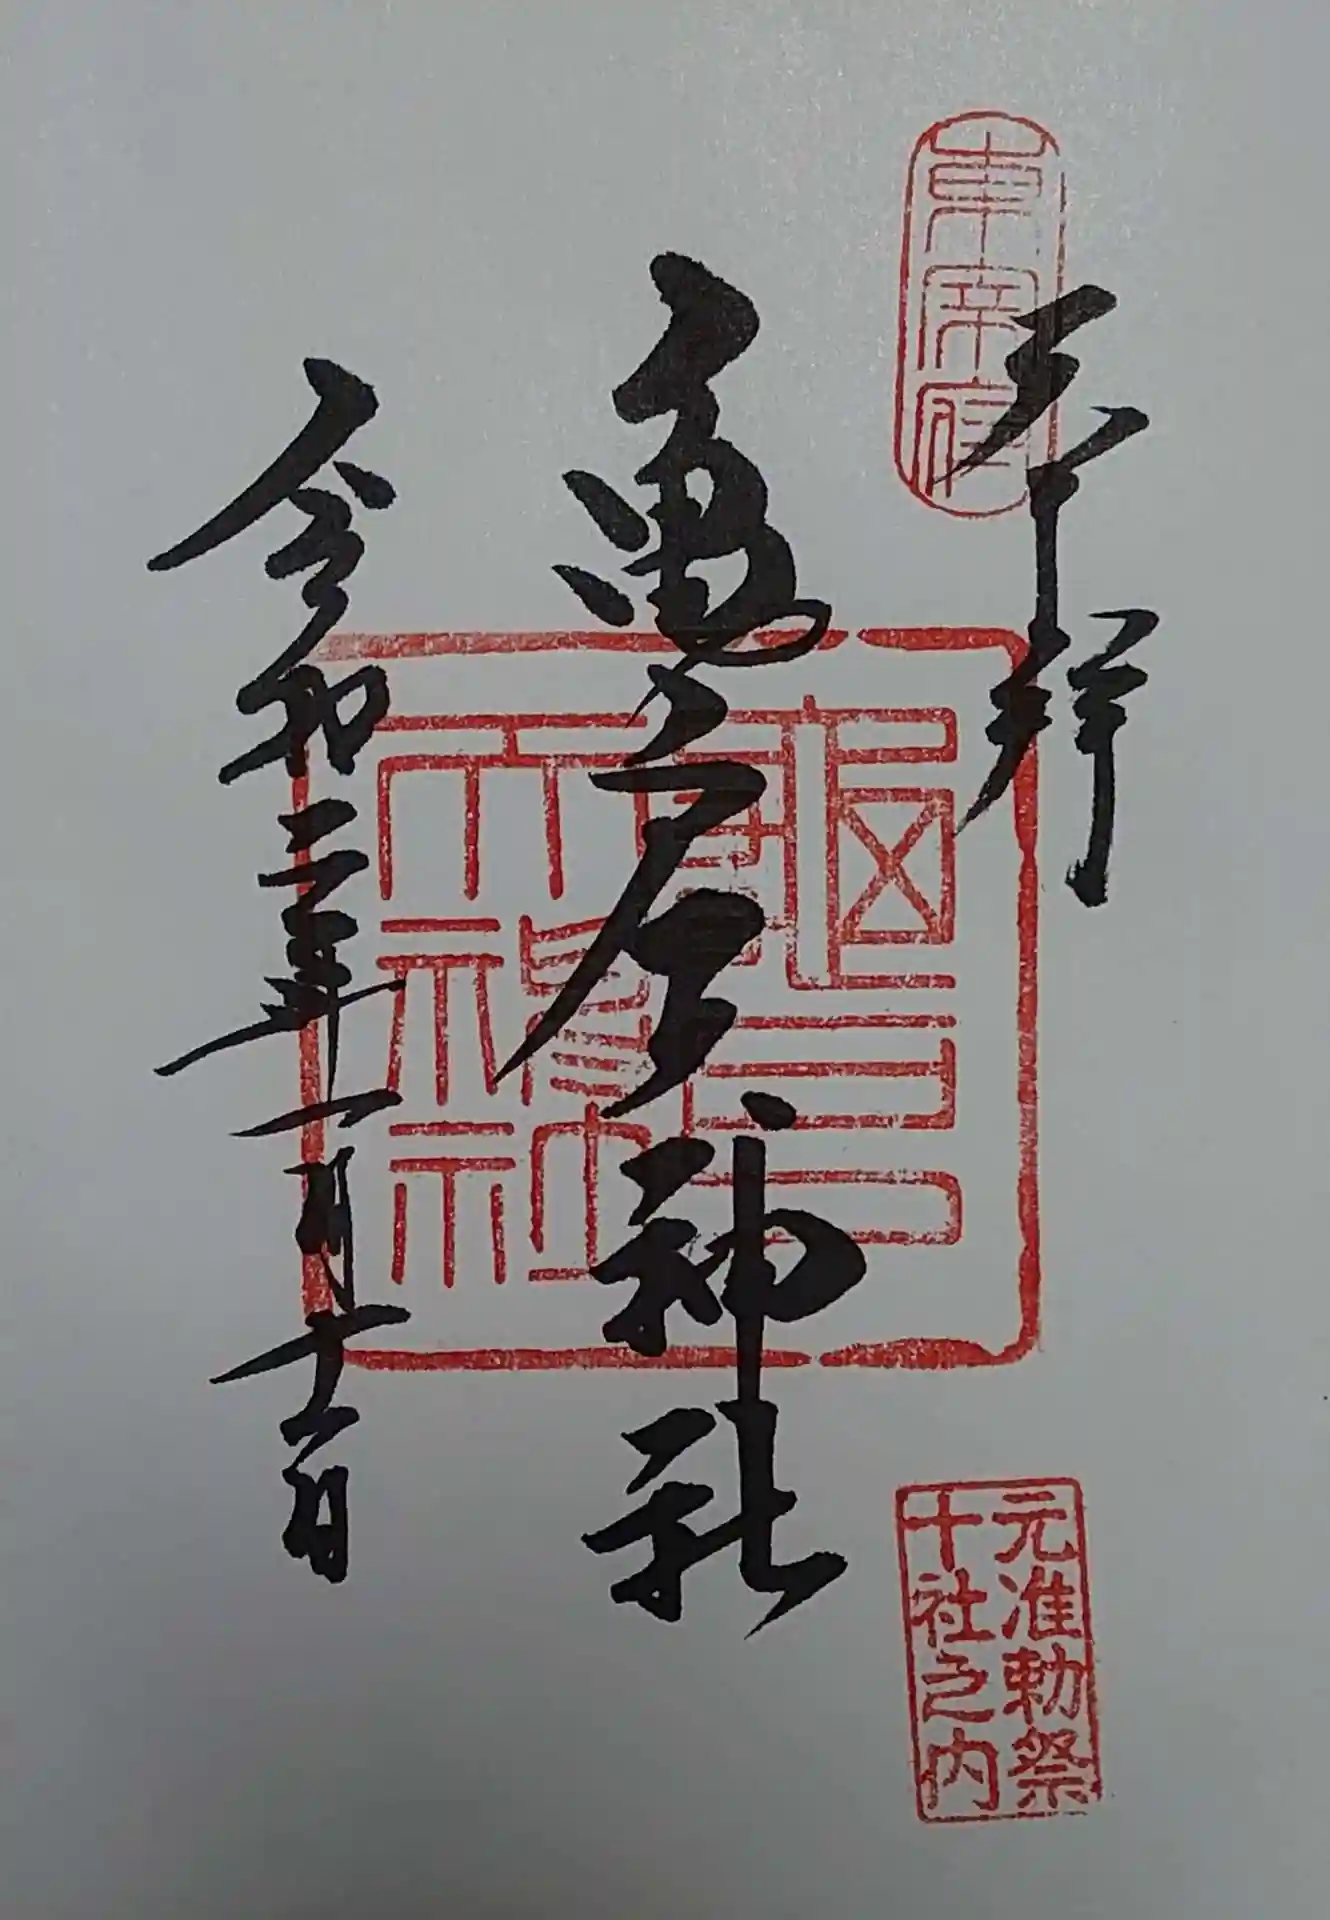 東宰府
奉拝
亀戸天神社
令和二年一月十一日
亀戸
天神社
元准勅祭
十社之内